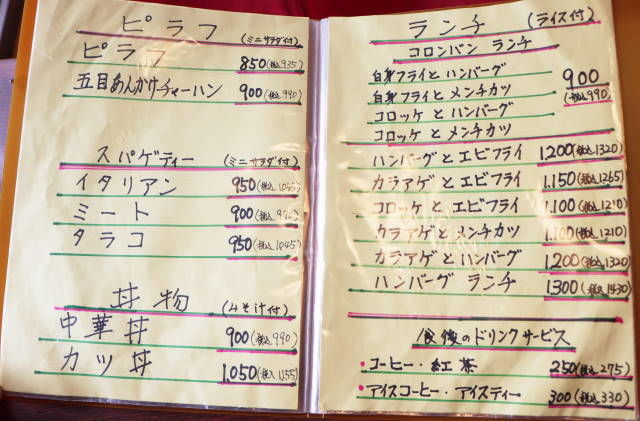 ピラフ (ミニサラダ付)
ピラフ 850(税込935)
五目あんかけチャーハン 900(税込990)
スパゲティー (ミニサラダ付)
イタリアン 950
ミート 900
タラコ 950(税込1045)
丼物 (みそ汁付)
中華丼 900(税込990)
カツ丼 1,050(税込1155)
ランチ (ライス付)
コロンバン ランチ
白身フライと ハンバーグ
白身フライと メンチカツ
コロッケと ハンバーグ
コロッケと メンチカツ
900
(税込990)
ハンバーグと エビフライ 1,200(税込1320)
カラアゲと エビフライ 1,150(税込1265)
コロッケと エビフライ 1,100(税込1210)
カラアゲと メンチカツ 1,100(税込1210)
カラアゲと ハンバーグ 1,200(税込1320)
ハンバーグ ランチ 1,300(税込1430)
食後のドリンクサービス
・コーヒー・紅茶 250(税込275)
・アイスコーヒー・アイスティー 300(税込330)